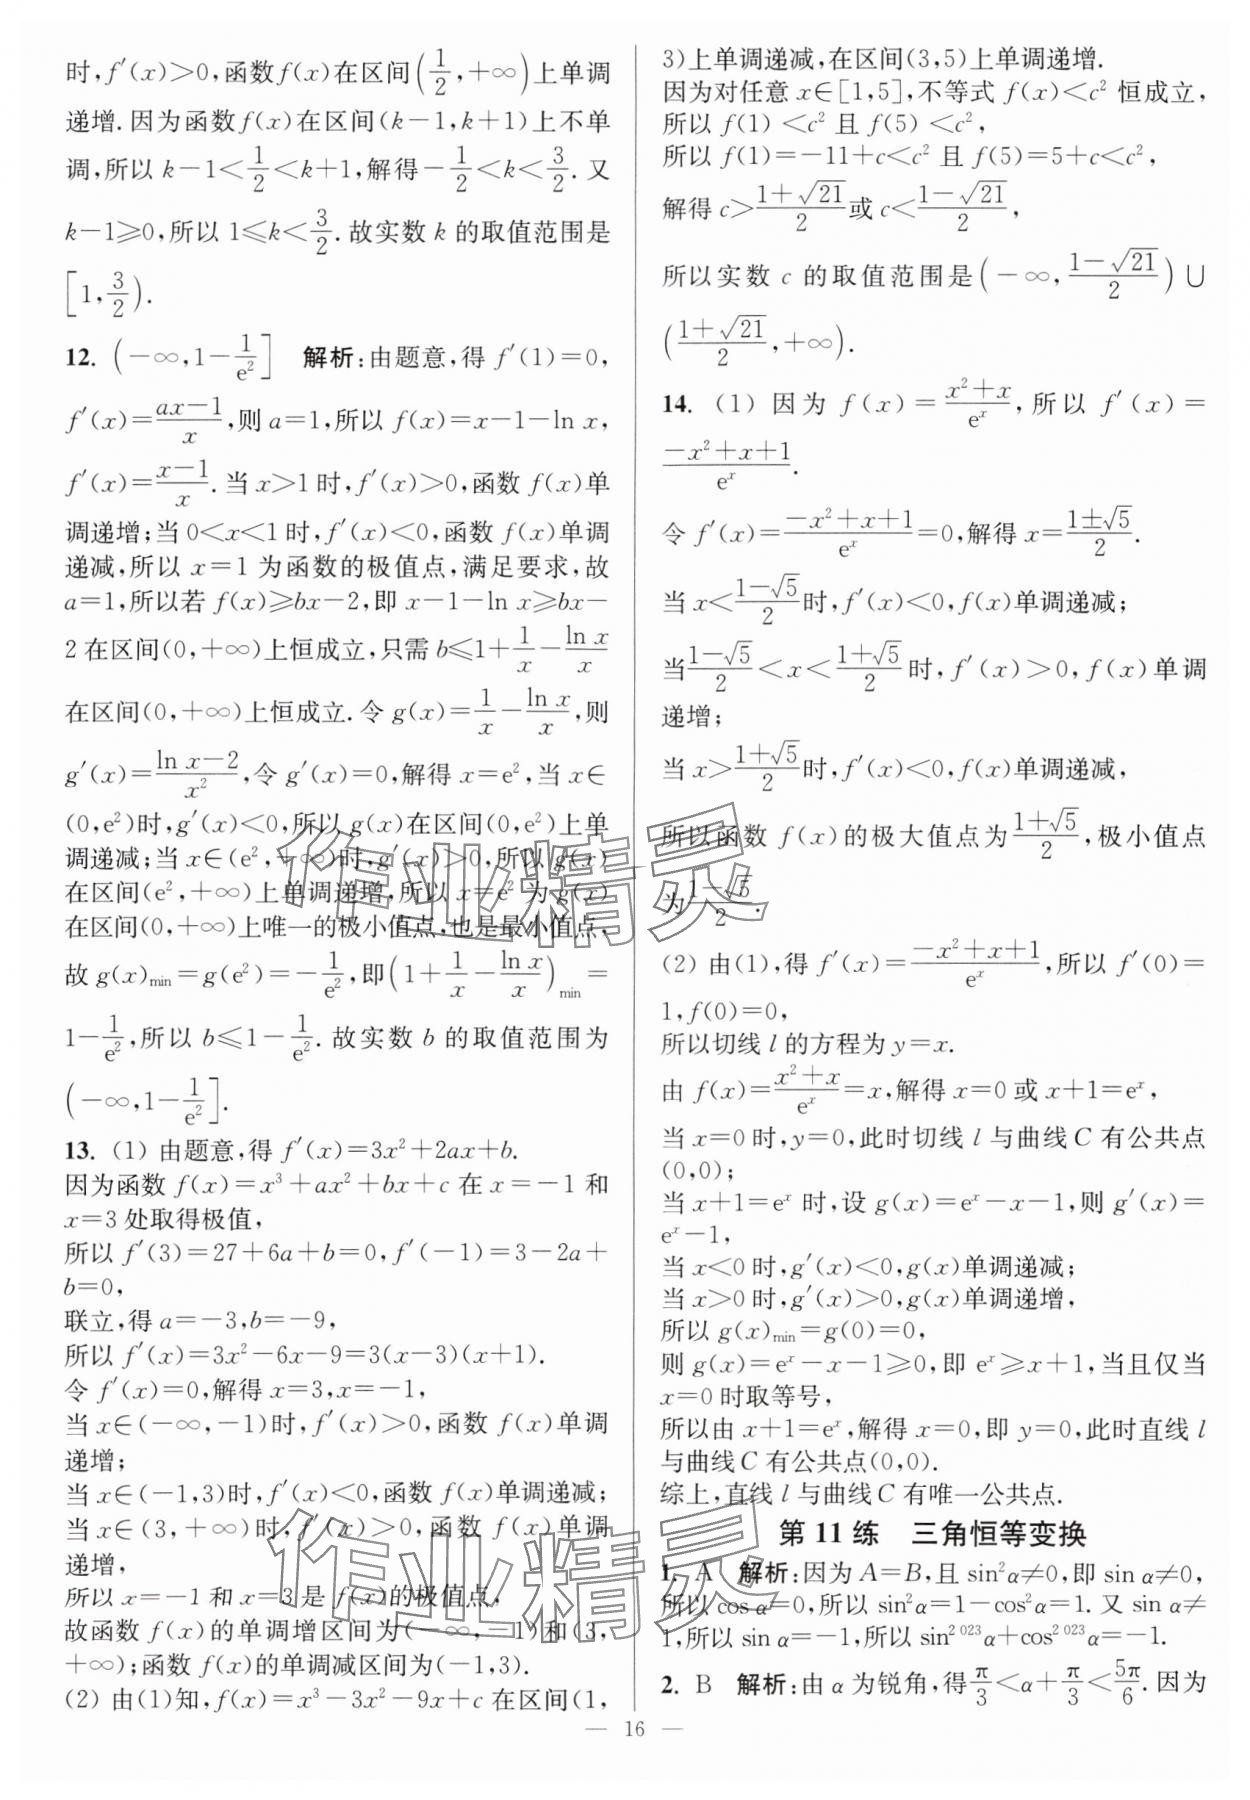 时,f′(x)>0,函数f(x)在区间(1/2,+∞)上单调
递增.因为函数f(x)在区间(k-1,k+1)上不单
调,所以 k-1<1/2<k+1,解得-1/2<k<3/2.又
k-1≥0,所以 1≤k<3/2.故实数 k 的取值范围是
[1,3/2).
12. (-∞,1-1/e²] 解析:由题意,得 f′(1)=0,
f′(x)=(ax-1)/x,则 a=1,所以 f(x)=x-1-ln x,
f′(x)=(x-1)/x.当 x>1 时,f′(x)>0,函数 f(x)单
调递增;当 0<x<1 时,f′(x)<0,函数 f(x)单调
递减,所以 x=1 为函数的极值点,满足要求,故
a=1,所以若 f(x)≥bx-2,即 x-1-ln x≥bx-
2 在区间(0,+∞)上恒成立,只需 b≤1+1/x-ln x/x
在区间(0,+∞)上恒成立.令 g(x)=1/x-ln x/x,则
g′(x)=(ln x-2)/x²,令 g′(x)=0,解得 x=e²,当 x∈
(0,e²)时,g′(x)<0,所以 g(x)在区间(0,e²)上单
调递减;当 x∈(e²,+∞)时,g′(x)>0,所以 g(x)
在区间(e²,+∞)上单调递增,所以 x=e² 为 g(x)
在区间(0,+∞)上唯一的极小值点,也是最小值点,
故 g(x)min=g(e²)=-1/e²,即(1+1/x-ln x/x)min=
1-1/e²,所以 b≤1-1/e².故实数 b 的取值范围为
(-∞,1-1/e²].
13. (1) 由题意,得 f′(x)=3x²+2ax+b.
因为函数 f(x)=x³+ax²+bx+c 在 x=-1 和
x=3 处取得极值,
所以 f′(3)=27+6a+b=0,f′(-1)=3-2a+
b=0,
联立,得 a=-3,b=-9,
所以 f′(x)=3x²-6x-9=3(x-3)(x+1).
令 f′(x)=0,解得 x=3,x=-1,
当 x∈(-∞,-1)时,f′(x)>0,函数 f(x)单调
递增;
当 x∈(-1,3)时,f′(x)<0,函数 f(x)单调递减;
当 x∈(3,+∞)时,f′(x)>0,函数 f(x)单调
递增,
所以 x=-1 和 x=3 是 f(x)的极值点,
故函数 f(x)的单调增区间为(-∞,-1)和(3,
+∞);函数 f(x)的单调减区间为(-1,3).
(2) 由(1)知,f(x)=x³-3x²-9x+c 在区间(1,
3)上单调递减,在区间(3,5)上单调递增.
因为对任意 x∈[1,5],不等式 f(x)<c² 恒成立,
所以 f(1)<c² 且 f(5)<c²,
所以 f(1)=-11+c<c² 且 f(5)=5+c<c²,
解得 c>(1+√21)/2或 c<(1-√21)/2,
所以实数 c 的取值范围是(-∞,(1-√21)/2)∪
((1+√21)/2,+∞).
14. (1) 因为 f(x)=(x²+x)/eˣ,所以 f′(x)=
(-x²+x+1)/eˣ.
令 f′(x)=(-x²+x+1)/eˣ=0,解得 x=(1±√5)/2.
当 x<(1-√5)/2时,f′(x)<0,f(x)单调递减;
当(1-√5)/2<x<(1+√5)/2时,f′(x)>0,f(x)单调
递增;
当 x>(1+√5)/2时,f′(x)<0,f(x)单调递减,
所以函数 f(x)的极大值点为(1+√5)/2,极小值点
为(1-√5)/2.
(2) 由(1),得 f′(x)=(-x²+x+1)/eˣ,所以 f′(0)=
1,f(0)=0,
所以切线 l 的方程为 y=x.
由 f(x)=(x²+x)/eˣ=x,解得 x=0 或 x+1=eˣ,
当 x=0 时,y=0,此时切线 l 与曲线 C 有公共点
(0,0);
当 x+1=eˣ 时,设 g(x)=eˣ-x-1,则 g′(x)=
eˣ-1,
当 x<0 时,g′(x)<0,g(x)单调递减;
当 x>0 时,g′(x)>0,g(x)单调递增,
所以 g(x)min=g(0)=0,
则 g(x)=eˣ-x-1≥0,即 eˣ≥x+1,当且仅当
x=0 时取等号,
所以由 x+1=eˣ,解得 x=0,即 y=0,此时直线 l
与曲线 C 有公共点(0,0).
综上,直线 l 与曲线 C 有唯一公共点.
第 11 练 三角恒等变换
1. A 解析:因为 A=B,且 sin²α≠0,即 sin α≠0,
所以 cos α=0,所以 sin²α=1-cos²α=1.又 sin α≠
1,所以 sin α=-1,所以 sin²⁰²³α+cos²⁰²³α=-1.
2. B 解析:由 α 为锐角,得π/3<α+π/3<5π/6.因为
— 16 —
作业精灵
作业精灵